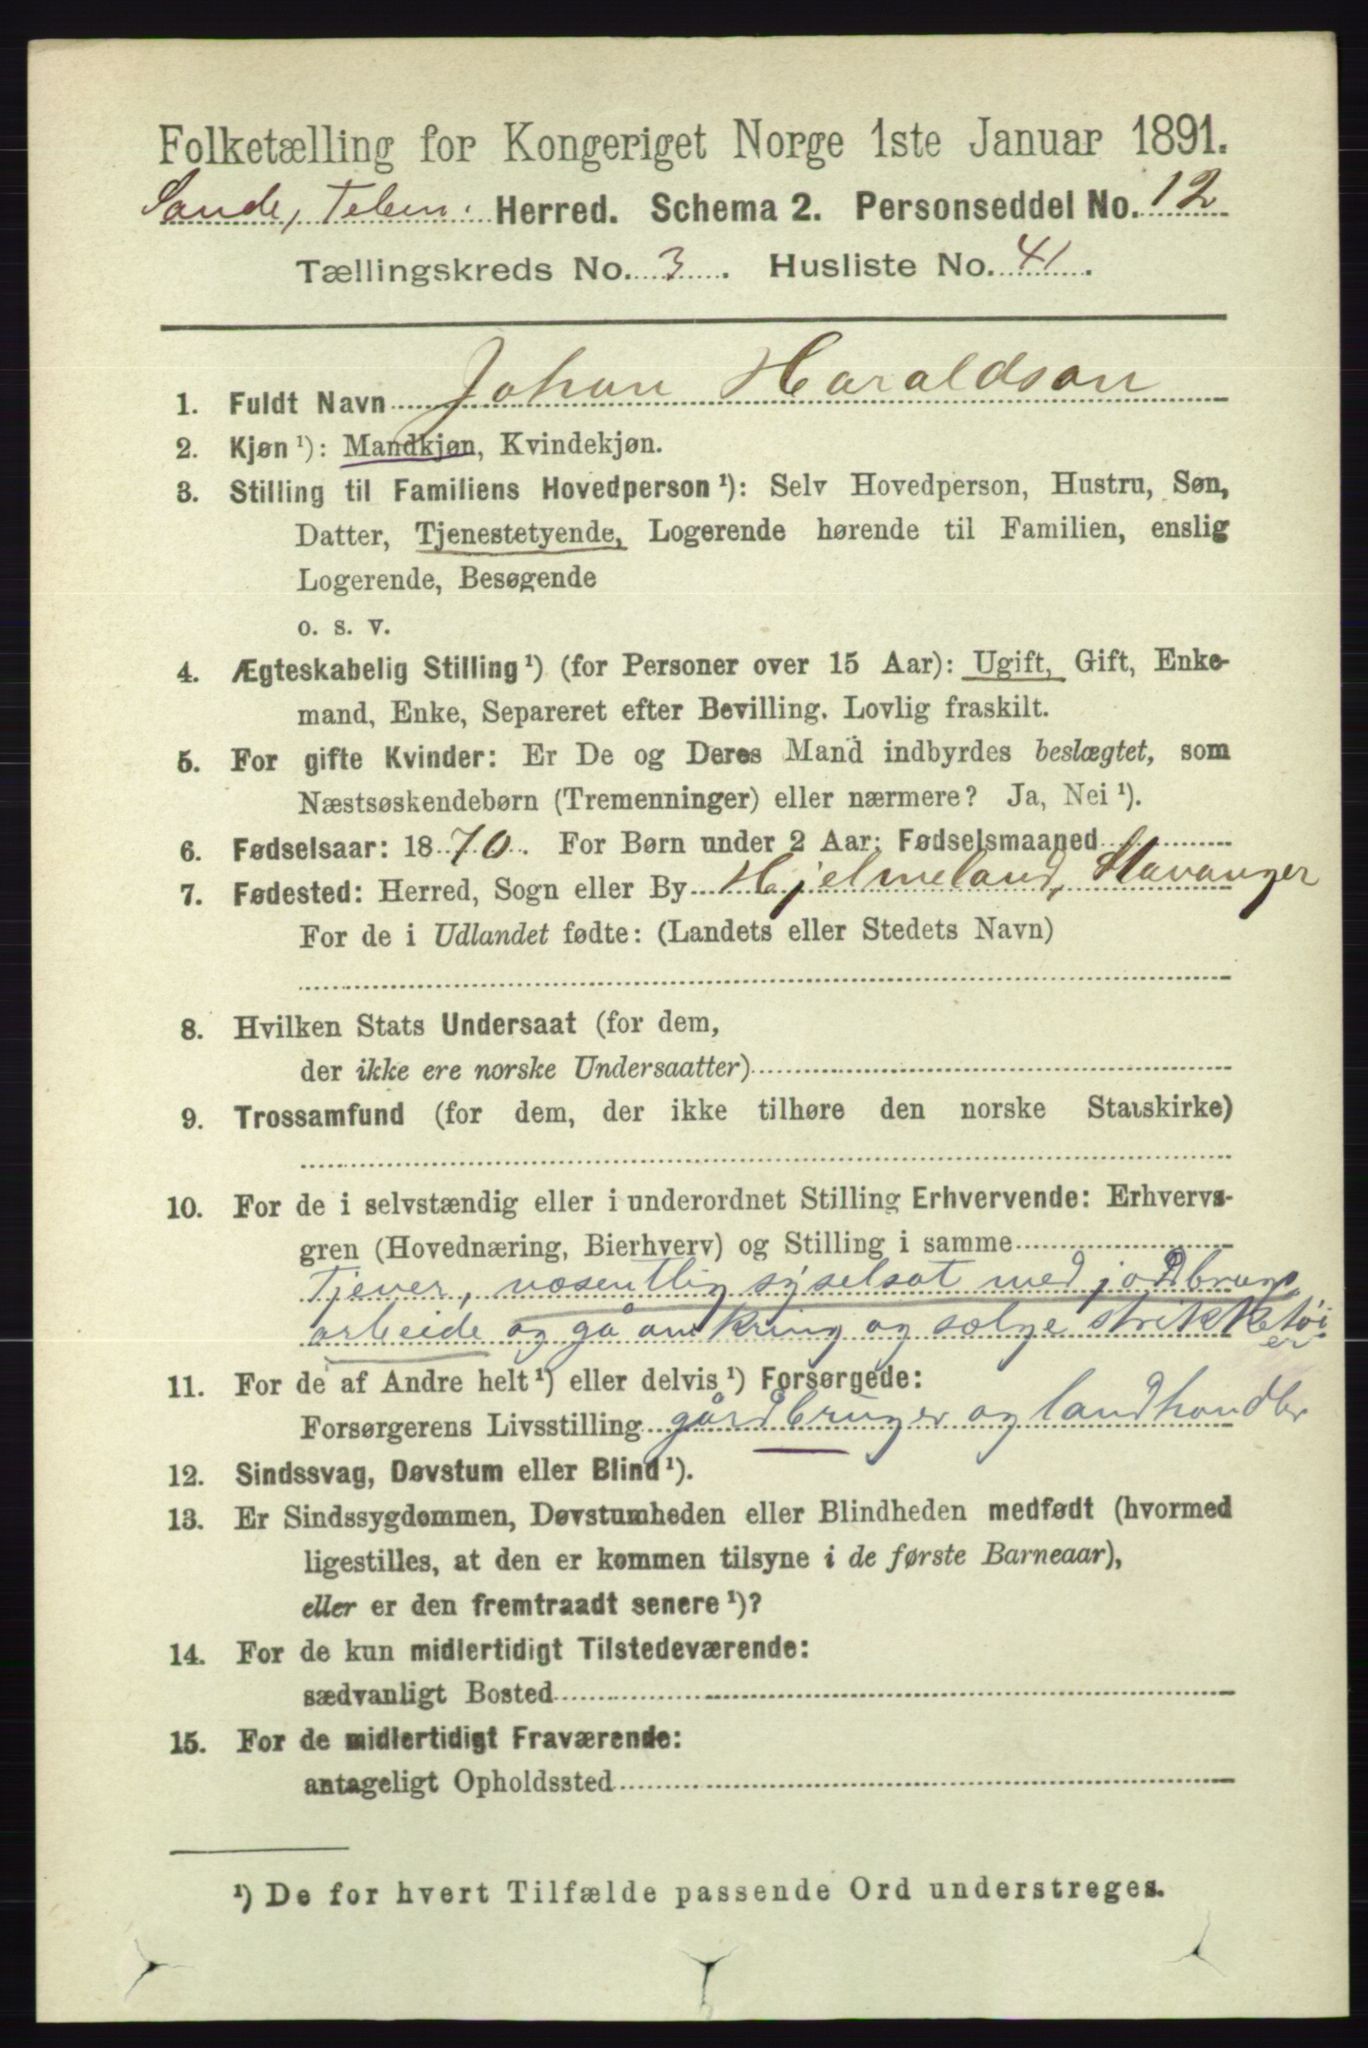 Folketælling for Kongeriget Norge 1ste Januar 1891.
Sande, Telem. Herred. Schema 2. Personseddel No. 12
Tællingskreds No. 3. Husliste No. 41.
1. Fuldt Navn Johan Haraldson
2. Kjøn¹): Mandkjøn, Kvindekjøn.
3. Stilling til Familiens Hovedperson¹): Selv Hovedperson, Hustru, Søn,
Datter, Tjenestetyende, Logerende hørende til Familien, enslig
Logerende, Besøgende
o. s. v.
4. Ægteskabelig Stilling¹) (for Personer over 15 Aar): Ugift, Gift, Enke-
mand, Enke, Separeret efter Bevilling. Lovlig fraskilt.
5. For gifte Kvinder: Er De og Deres Mand indbyrdes beslægtet, som
Næstsøskendebørn (Tremenninger) eller nærmere? Ja, Nei¹).
6. Fødselsaar: 1870. For Børn under 2 Aar: Fødselsmaaned
7. Fødested: Herred, Sogn eller By Hjelmeland, Stavanger
For de i Udlandet fødte: (Landets eller Stedets Navn)
8. Hvilken Stats Undersaat (for dem,
der ikke ere norske Undersaatter)
9. Trossamfund (for dem, der ikke tilhøre den norske Statskirke)
10. For de i selvstændig eller i underordnet Stilling Erhvervende: Erhvervs-
gren (Hovednæring, Bierhverv) og Stilling i samme
Tjener, væsentlig syselsat med jordbrugs
arbeide og gå omkring og sælge strikketøi
er
11. For de af Andre helt¹) eller delvis¹) Forsørgede:
Forsørgerens Livsstilling gårdbruger og landhandler
12. Sindssvag, Døvstum eller Blind¹).
13. Er Sindssygdommen, Døvstumheden eller Blindheden medfødt (hvormed
ligestilles, at den er kommen tilsyne i de første Barneaar),
eller er den fremtraadt senere¹)?
14. For de kun midlertidigt Tilstedeværende:
sædvanligt Bosted
15. For de midlertidigt Fraværende:
antageligt Opholdssted
¹) De for hvert Tilfælde passende Ord understreges.